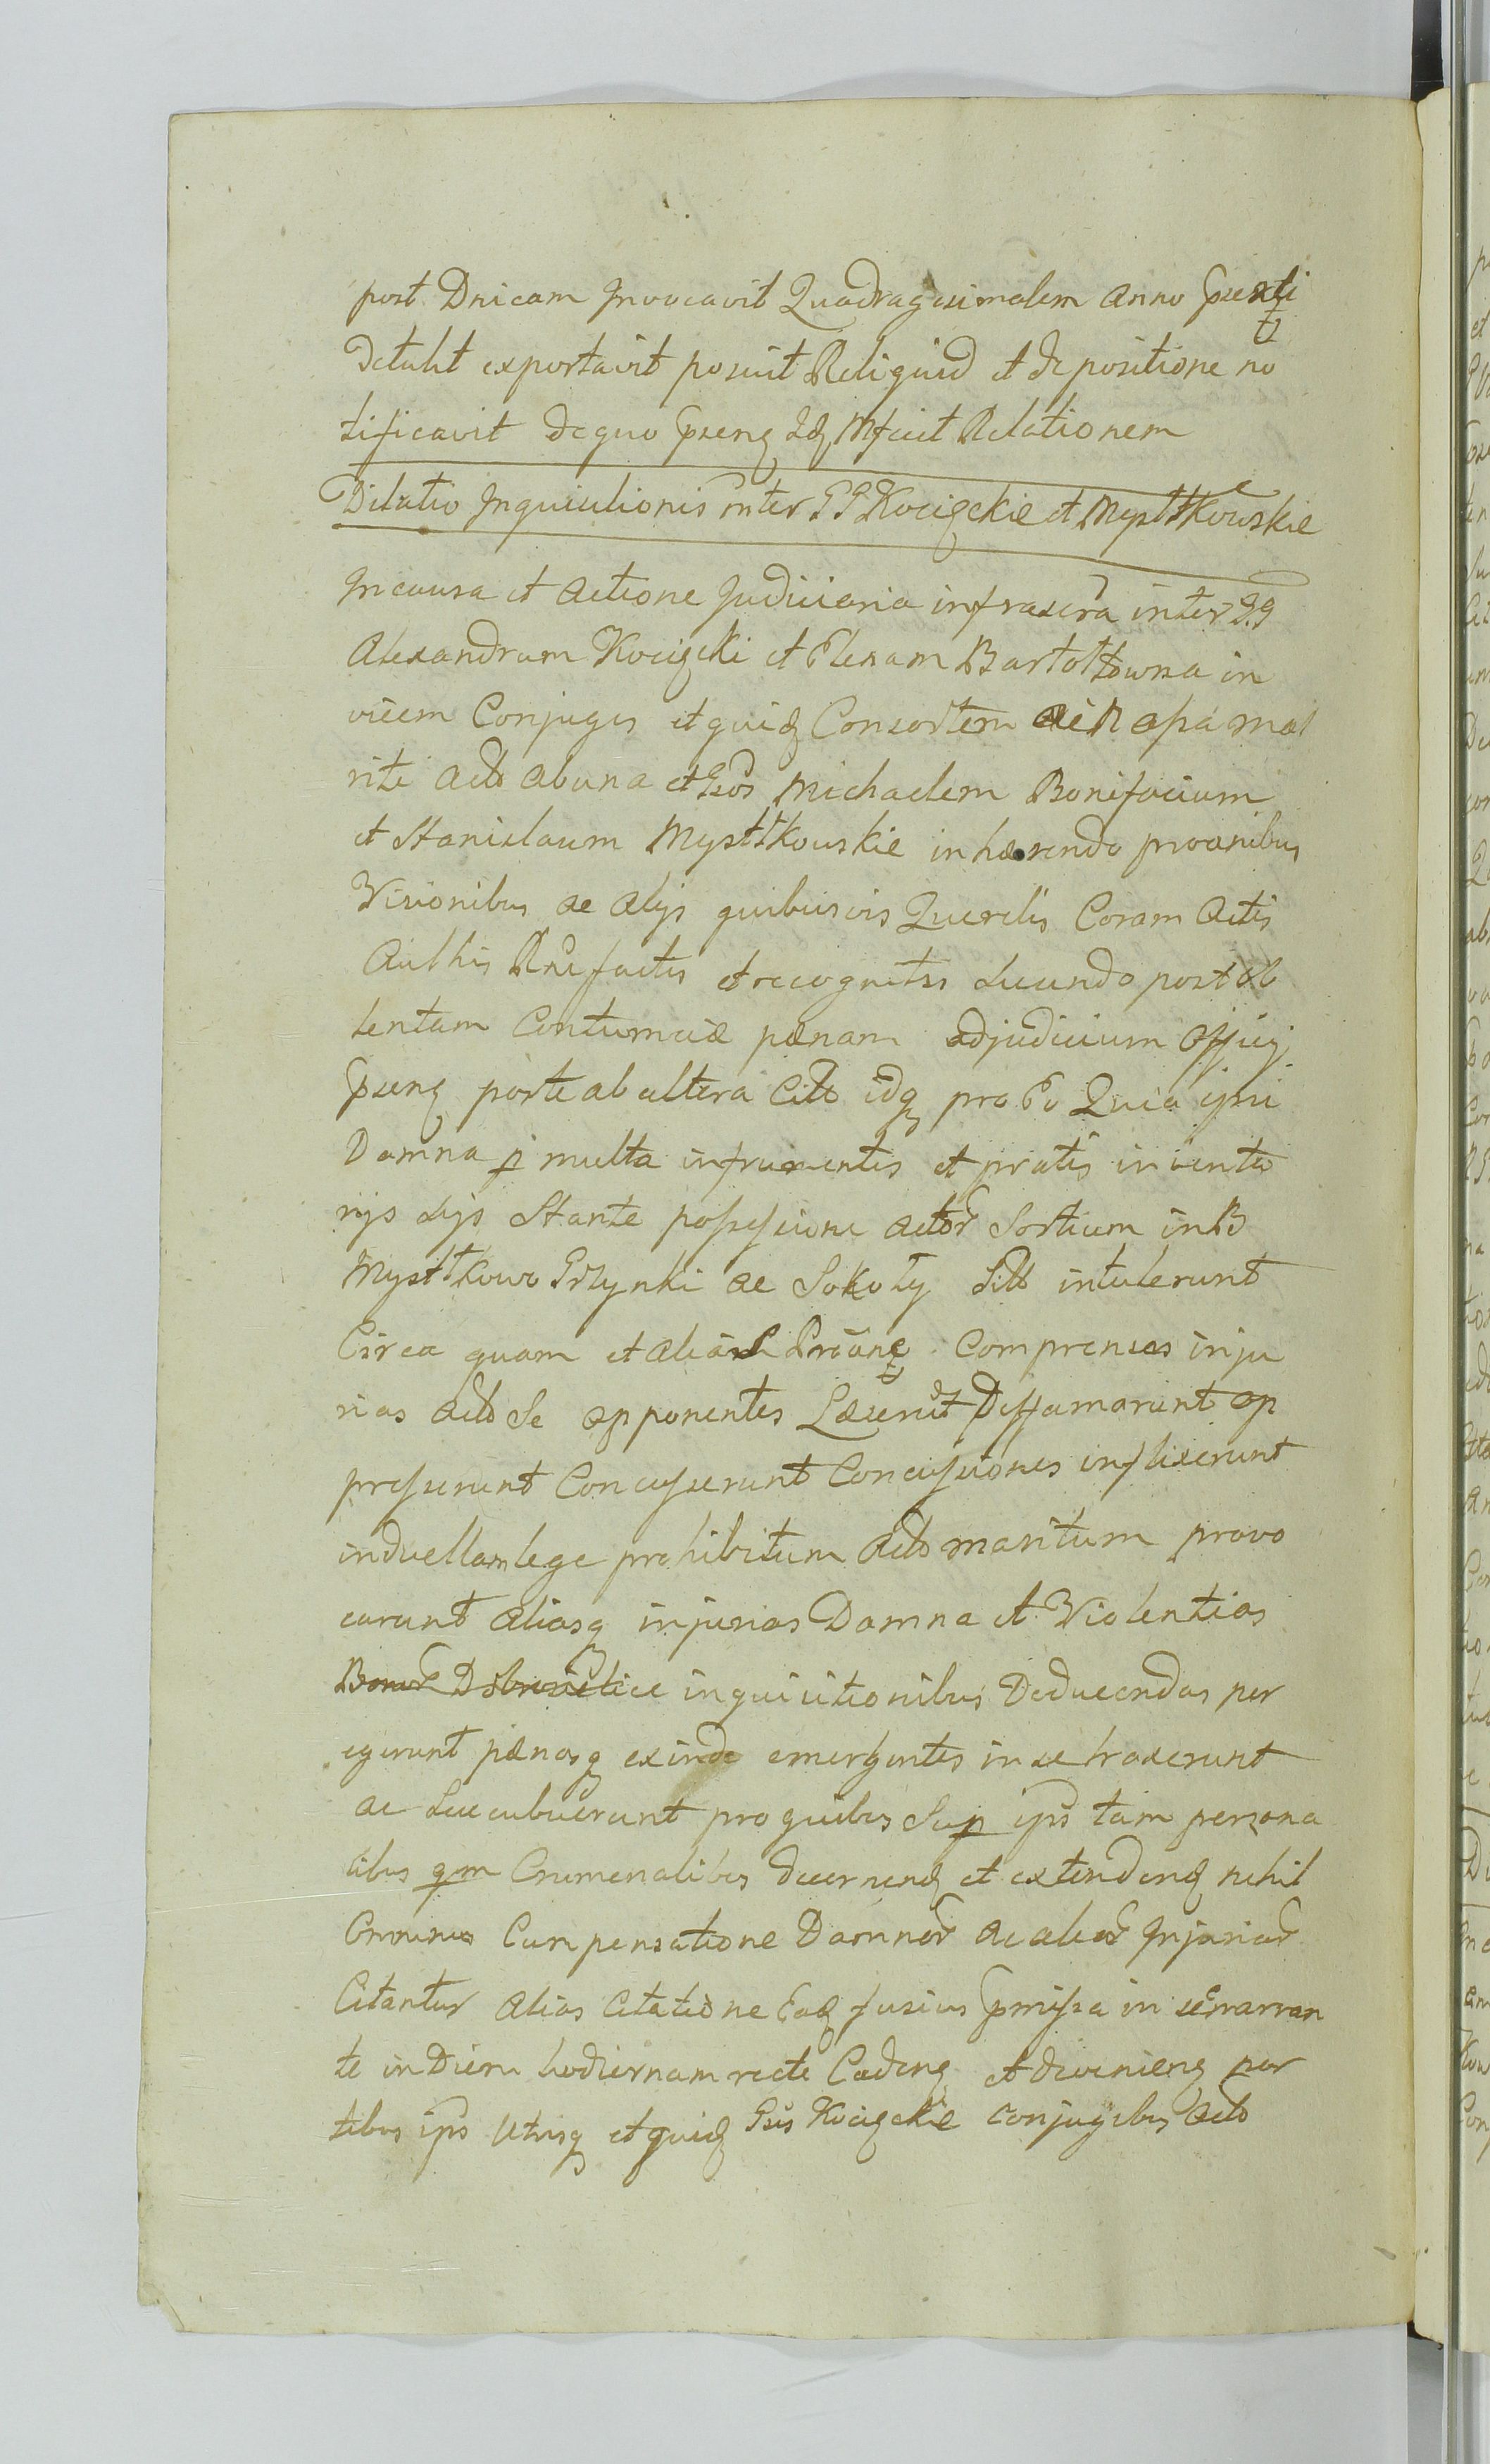 post Dnicam Invocavit Quadragesimalem Anno psenti
Detulit exportavit posuit Reliquid et de positione no
tificavit de quo psenq Idq Mfecit Relationem
Dilatio Inquisitionis inter GG Kocięckie et Mystkowskie
In causa et Actione Judiciaria infrascra inter GG
Alexandrum Kocięcki et Elenam Bartołtowna in
vicem Conjuges et quidq Consortem mari
ti Acto ab una et Gsos Michaelem Bonifacium
et Stanislaum Mystkowskie inhærendo prioribus
Visionibus ac Alijs quibusvis Querelis Coram Actis
Authis factis et recognitis Secundo post ob
tentam Contumaciæ pænam ad judicium Officij
psenq parte ab altera Citto idq pro Eo Quia ipsi
Damna p multa in frumentis et pratis inventa
rijs Sijs Stante possessione Actor Sortium in B
Mysttkowo Grzynki ac Sokoły Sitto intulerunt
Circa quam et Compreusas inju
rias Acto Se opponentes Læserut Deffamarunt op
presserunt Concusserunt Concussiones inflixerunt
in duellam lege prohibitum Acto maritum provo
carunt Aliasq injurias Damna et Violentias
inquisitionibus Deducendas per
egerunt pænasq exinde emergentes in se traxerunt
ac Succubuerunt pro quibus Sup ipis tam persona
libus qm Criminalibus decernend et extendend nihil
Ominus Compensatione Damnor Ac alior Injuriar
Citantur Alias Citatione Eaq fusius pmissa in se narran
te in Diem hodiernam recte Cadenq et devenienq par
tibus ipis Utrisq et quidq Gsis Kocięckie Conjugibus Acto